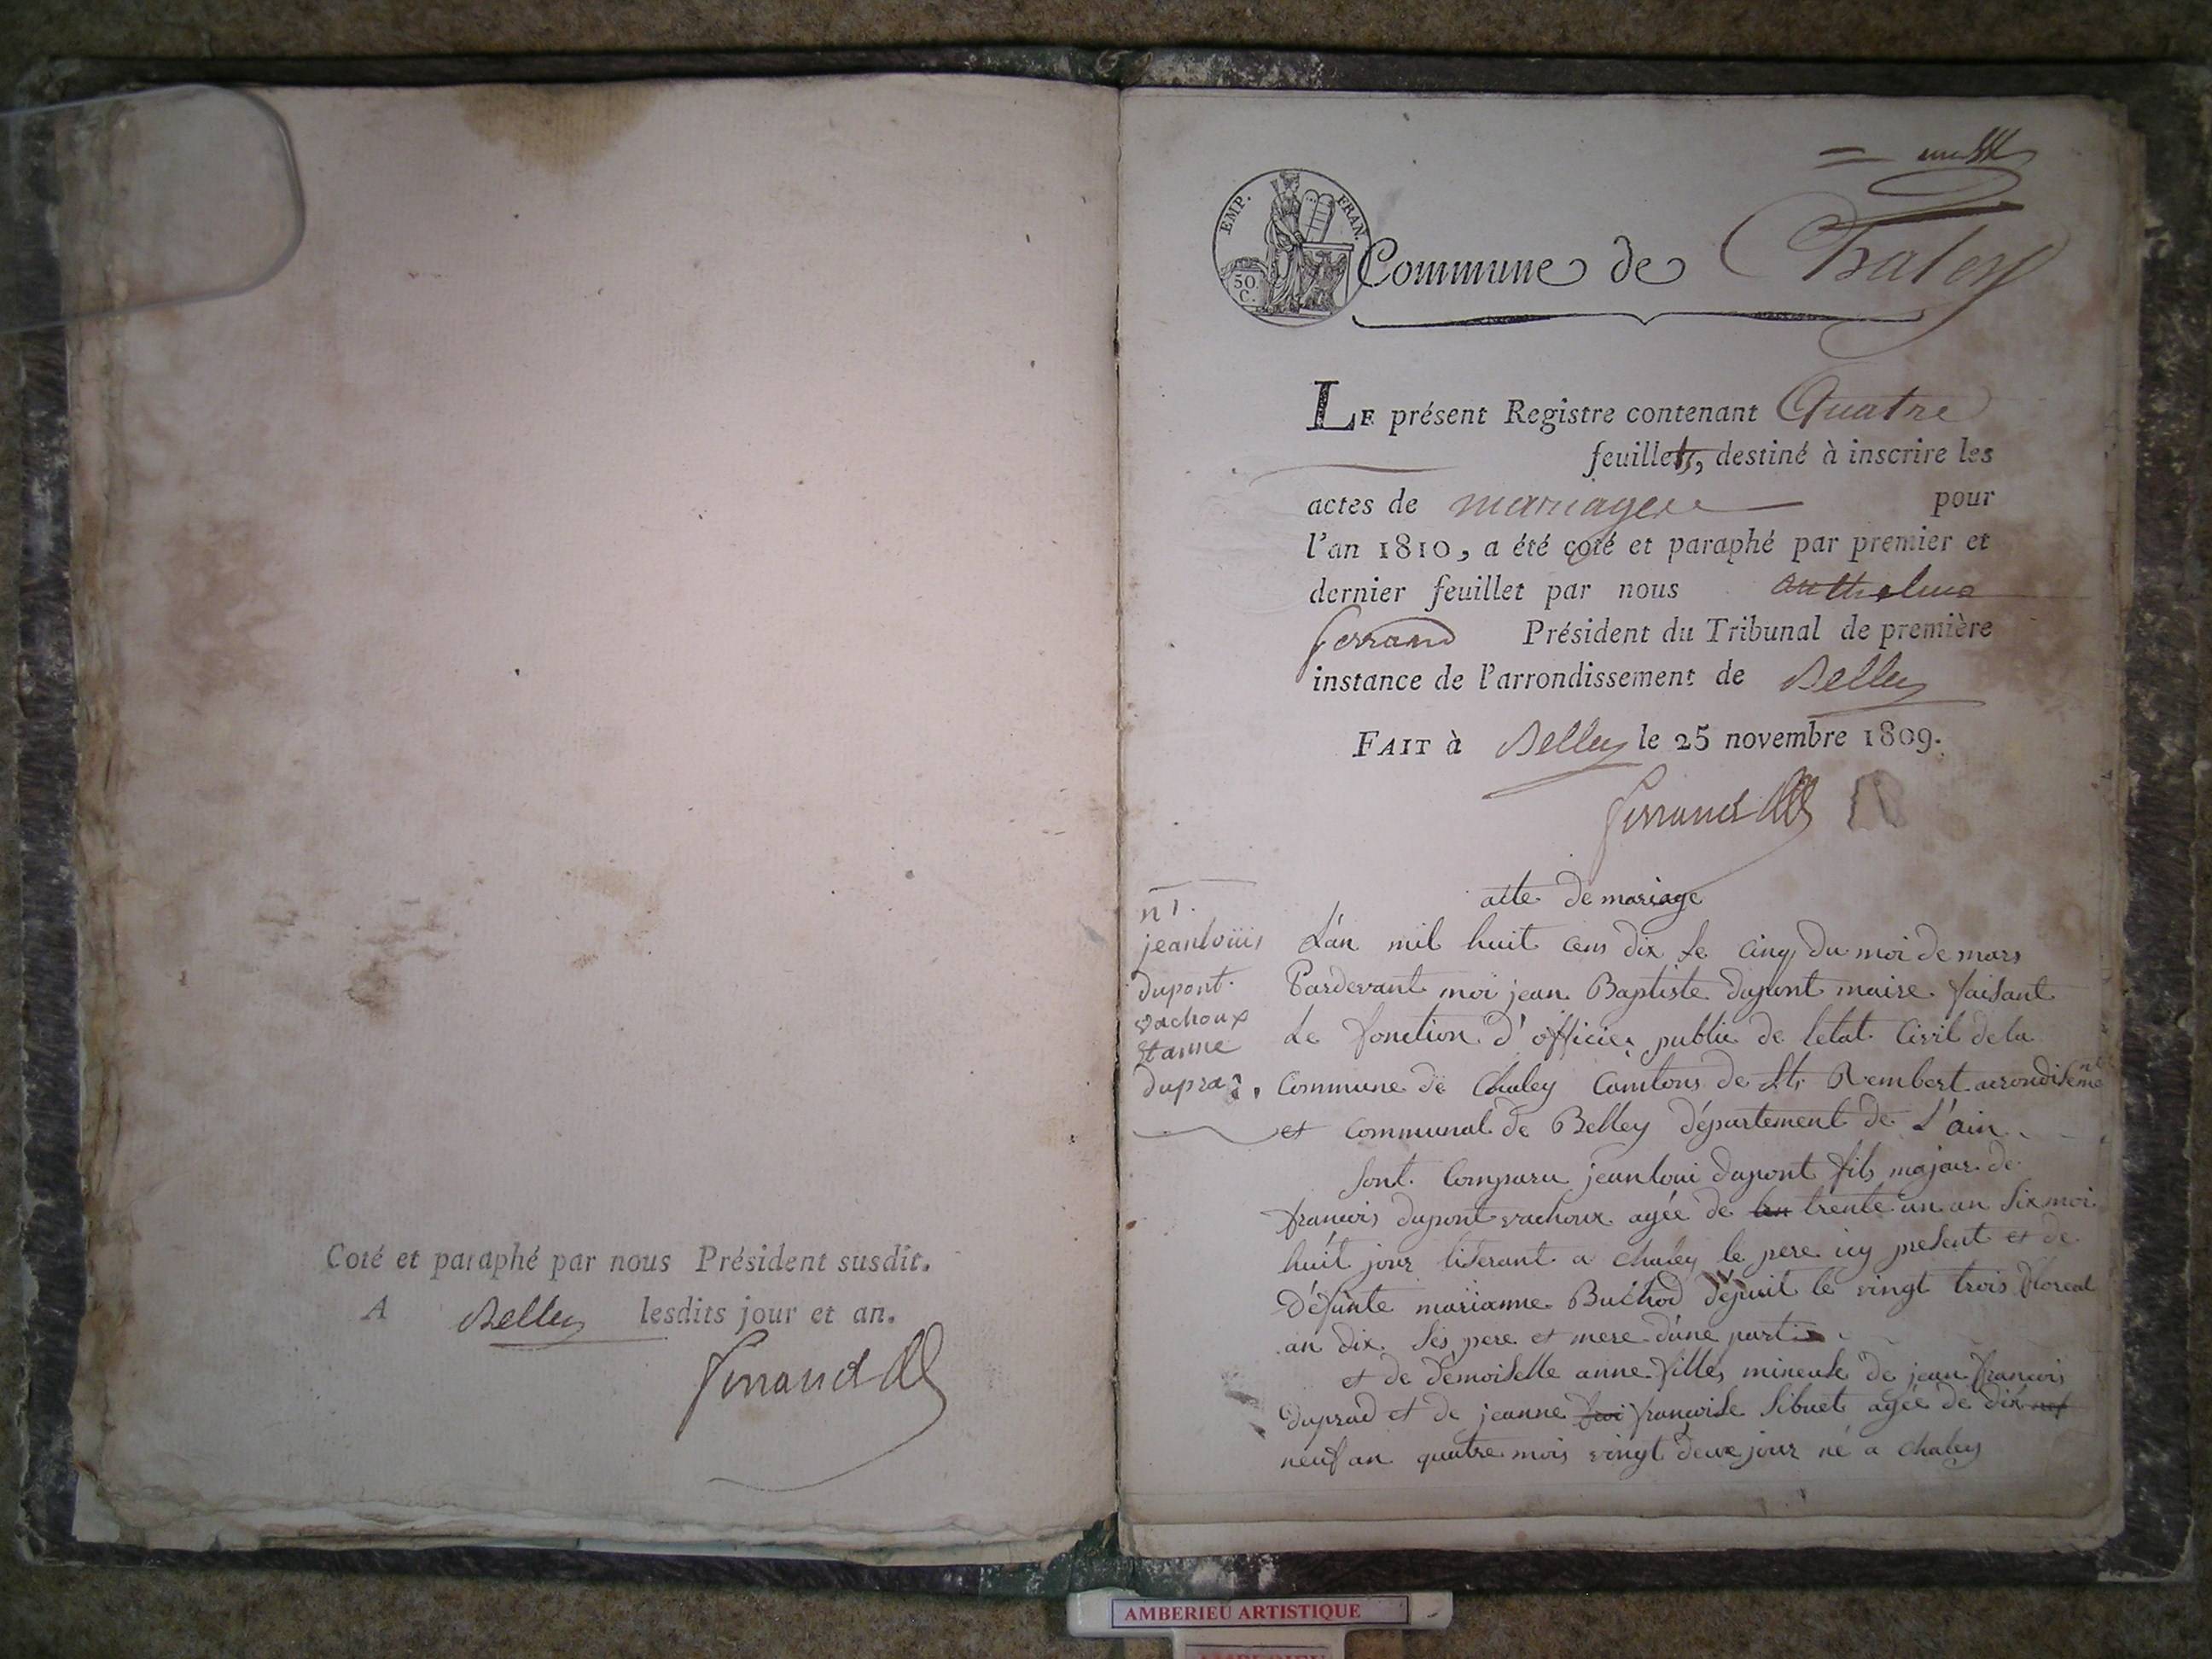 Coté et paraphé par nous Président susdit.
A Belley lesdits jour et an.
ferrand
EMP. FRAN.
50 C.
Commune de Chaley
LE présent Registre contenant Quatre
feuillets, destiné à inscrire les
actes de mariages pour
l'an 1810, a été coté et paraphé par premier et
dernier feuillet par nous anthelme
ferrand Président du Tribunal de première
instance de l'arrondissement de Belley
FAIT à Belley le 25 novembre 1809.
ferrand
acte de mariage
n 1.
jeanlouis
dupont
vachoux
et anne
dupraz.
L'an mil huit cens dix le cinq du moi de mars
Pardevant moi jean Baptiste dupont maire faisant
Le fonction d'officier public de letat Civil de la
Commune de Chaley Cantons de St Rembert arondisemnt
et Communal de Belley département de L'ain
sont comparu jeanloui dupont fils majeur de
francois dupont vachoux agée de trente un an six moi
huit jour a chaley le pere icy present et de
défunte marianne Buchod le vingt trois floreal
an dix ses pere et mere dune part
et de demoiselle anne fille mineuse de jean francois
duprad et de jeanne francoise sibuet agée de dix
neuf an quatre mois vingt deux jour né a chaley
AMBERIEU ARTISTIQUE
AMBERIEU